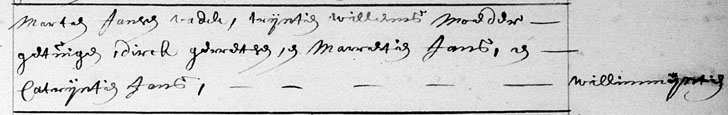 Marten Jansen vader, tryntie willems Moeder —
getuige, dirck gerretsen, en Marretie Jans, en —
Catryntie Jans, — — — — — willimmyntie